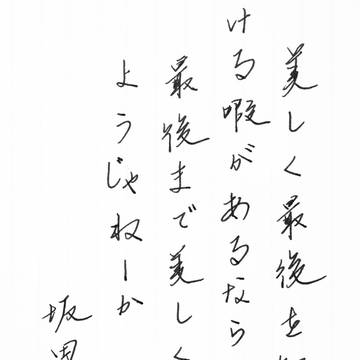 美しく最後を
ける暇があるなら
最後まで美しく
ようじゃねーか
坂田